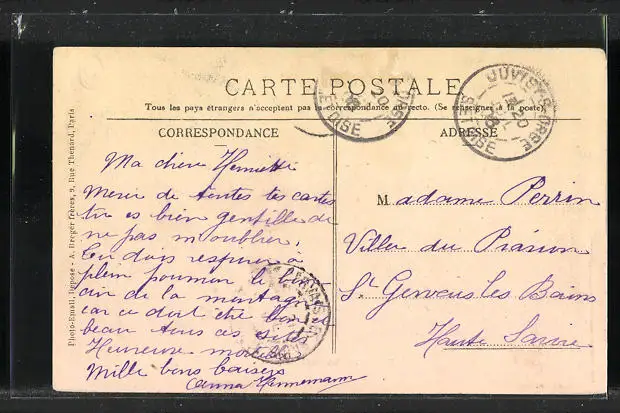 CARTE POSTALE
Tous les pays étrangers n'acceptent pas la correspondance au recto. (Se renseigner à la poste).
CORRESPONDANCE
ADRESSE
Ma chère Henriette
Merci de toutes tes cartes
tu es bien gentille de
ne pas m'oublier.
Tu dois respirer à
plein poumon le bon
air de la montagne
car ce doit être bien
beau tous ces sites
Heureuse
Mille bons baisers
Anna Hennemann
Madame Perrin
Villa du
St Gervais les Bains
Haute Savoie
JUVISY-S-ORGE
SEINE ET OISE
ORGE
ET OISE
Photo-Email, Ignose - A. Breger frères, 9, Rue Thénard, Paris